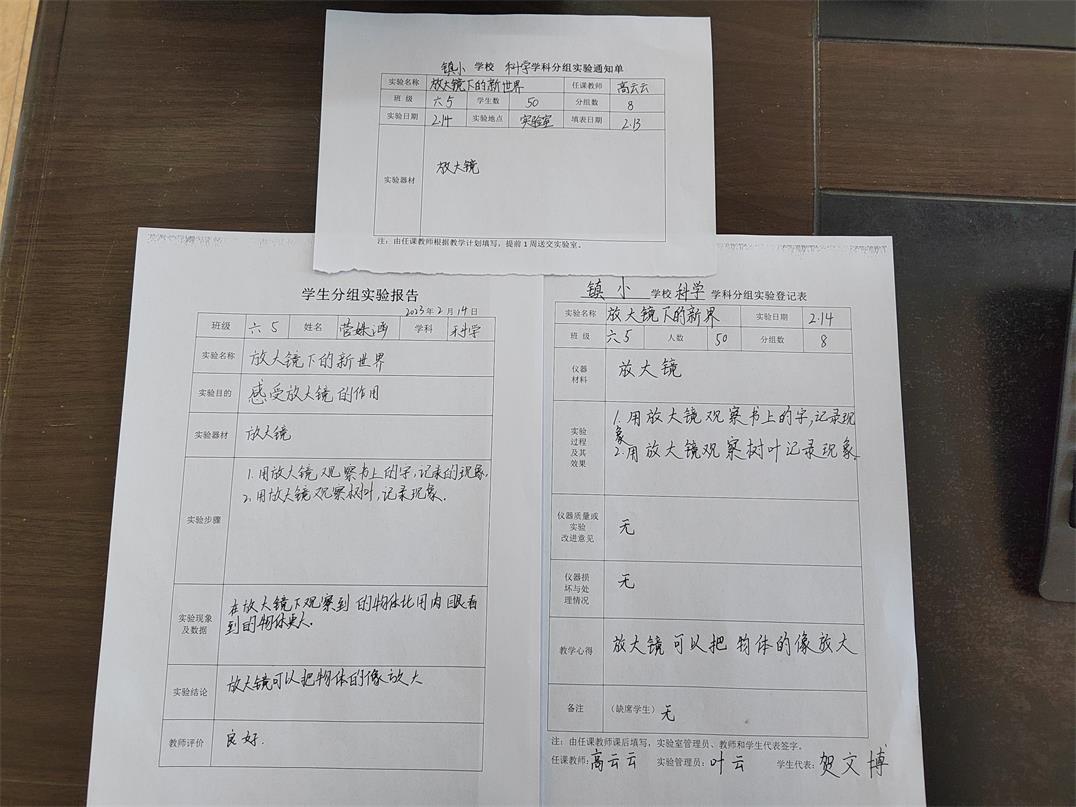 镇小 学校 科学学科分组实验通知单
实验名称 放大镜下的新世界 任课教师 高云云
班 级 六5 学生数 50 分组数 8
实验日期 2.14 实验地点 实验室 填表日期 2.13
实验器材 放大镜
注：由任课教师根据教学计划填写，提前1周送交实验室。
学生分组实验报告
2023年2月14日
班级 六5 姓名 学科 科学
实验名称 放大镜下的新世界
实验目的 感受放大镜的作用
实验器材 放大镜
实验步骤
1.用放大镜观察书上的字,记录的现象.
2.用放大镜观察树叶,记录现象.
实验现象
及数据
在放大镜下观察到的物体比用肉眼看
到的物体更大.
实验结论 放大镜可以把物体的像放大
教师评价 良好.
镇小 学校科学 学科分组实验登记表
实验名称 放大镜下的新界 实验日期 2.14
班 级 六5 人数 50 分组数 8
仪器
材料
放大镜
实验
过程
及其
效果
1.用放大镜观察书上的字,记录现
象
2.用放大镜观察树叶记录现象.
仪器质量或
实验
改进意见
无
仪器损
坏与处
理情况
无
教学心得 放大镜可以把物体的像放大
备注 （缺席学生）无
注：由任课教师课后填写，实验室管理员、教师和学生代表签字。
任课教师:高云云 实验管理员:叶云 学生代表:贺文博